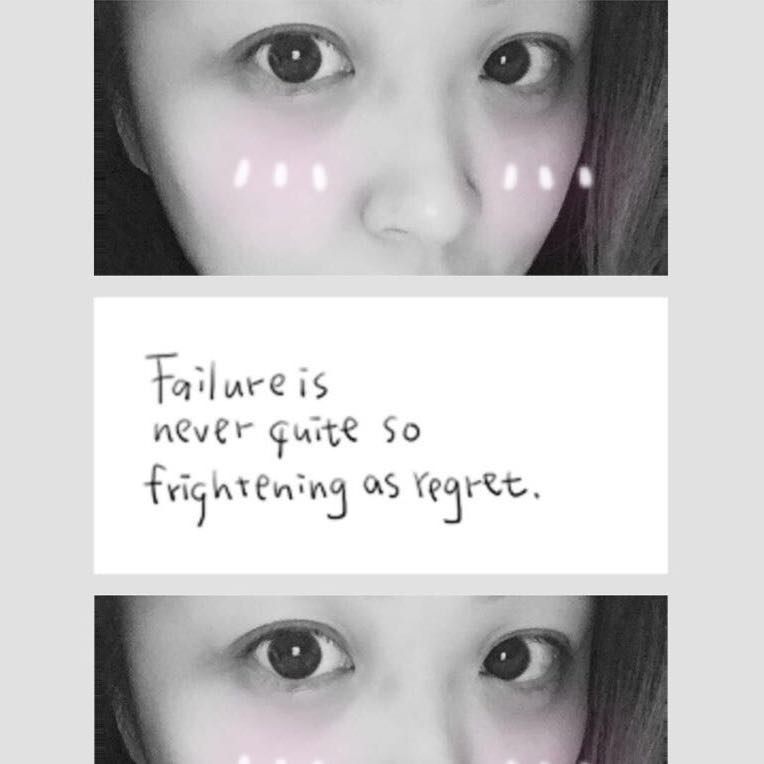 Failure is
never quite so
frightening as regret.